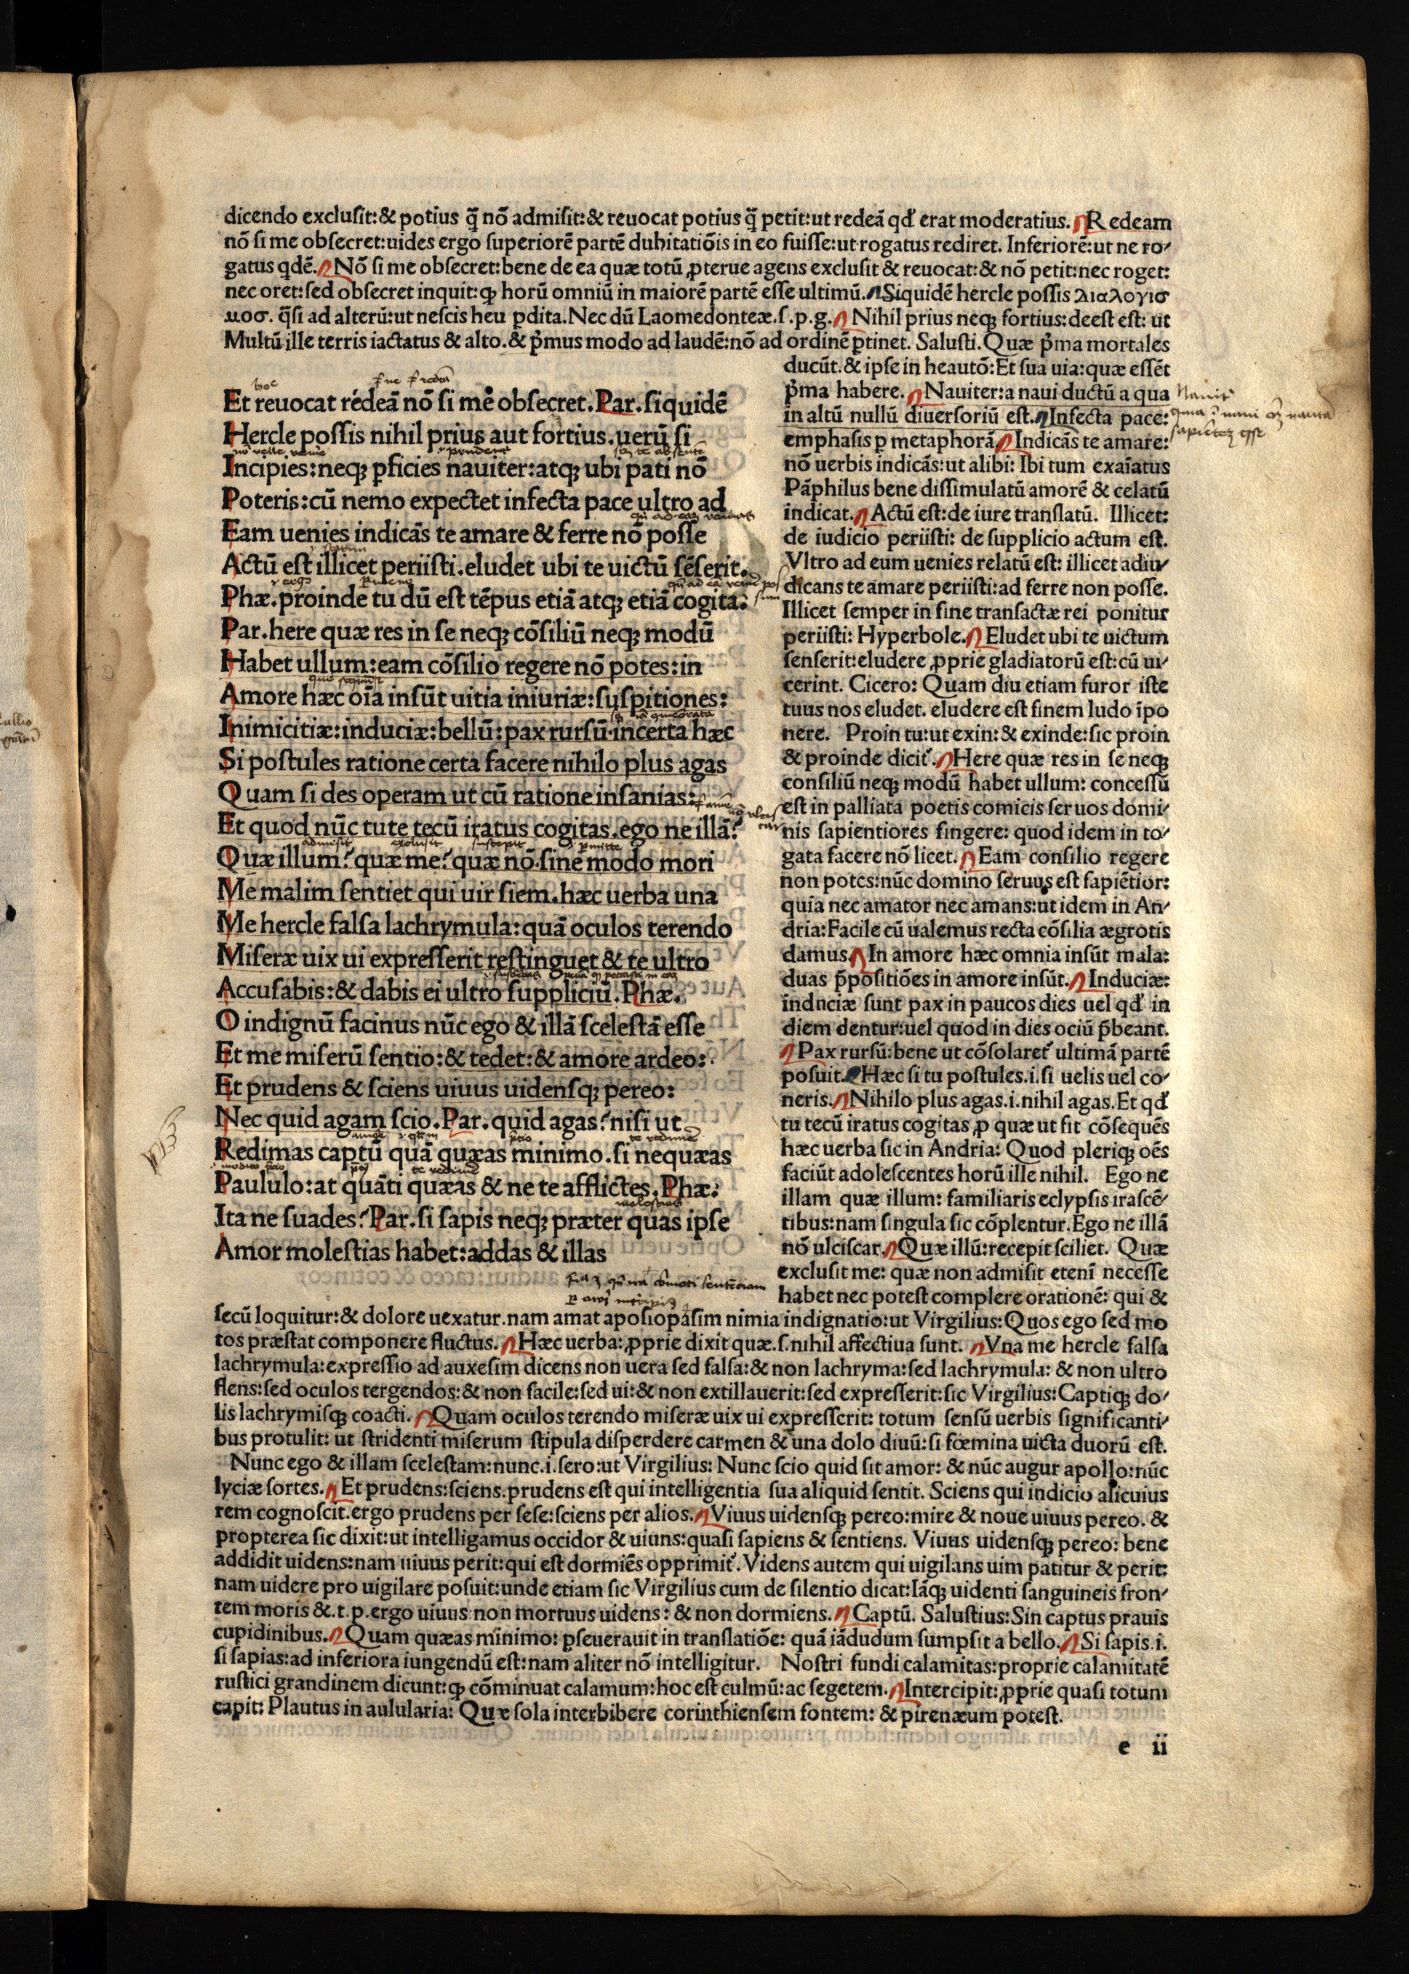 dicendo exclusit:& potius q̃ nõ admisit:& reuocat potius q̃ petit:ut redeã qđ erat moderatius. Redeam
nõ si me obsecret:uides ergo superiorẽ partẽ dubitatiõis in eo fuisse:ut rogatus rediret. Inferiorẽ:ut ne ro-
gatus qdẽ. Nõ si me obsecret:bene de ea quæ totũ ꝓterue agens exclusit & reuocat:& nõ petit:nec roget:
nec oret:sed obsecret inquit:ꝙ horũ omniũ in maiorẽ partẽ esse ultimũ. Siquidẽ hercle possis λιαλογισ
μοσ. q̃si ad alterũ:ut nescis heu ꝑdita. Nec dũ Laomedonteæ.s.p.g. Nihil prius neqꝫ fortius:deest est: ut
Multũ ille terris iactatus & alto.& p̃mus modo ad laudẽ:nõ ad ordinẽ ꝑtinet. Salusti. Quæ p̃ma mortales
Et reuocat redeã nõ si me obsecret. Par. siquidẽ
Hercle possis nihil prius aut fortius. uerũ si
Incipies:neqꝫ ꝑficies nauiter:atqꝫ ubi pati nõ
Poteris:cũ nemo expectet infecta pace ultro ad
Eam uenies indicãs te amare & ferre nõ posse
Actũ est illicet periisti. eludet ubi te uictũ sẽserit.
Phæ. proinde tu dũ est tẽpus etiã atqꝫ etiã cogita:
Par. here quæ res in se neqꝫ cõsiliũ neqꝫ modũ
Habet ullum:eam cõsilio regere nõ potes:in
Amore hæc oĩa insũt uitia iniuriæ:suspitiones:
Inimicitiæ:induciæ:bellũ:pax rursũ.incerta hæc
Si postules ratione certa facere nihilo plus agas
Quam si des operam ut cũ ratione insanias:
Et quod nũc tute tecũ iratus cogitas. ego ne illã?
Quæ illum? quæ me? quæ nõ. sine modo mori
Me malim sentiet qui uir siem. hæc uerba una
Me hercle falsa lachrymula:quã oculos terendo
Miseræ uix ui expresserit restinguet & te ultro
Accusabis:& dabis ei ultro suppliciũ. Phæ.
O indignũ facinus nũc ego & illã scelestã esse
Et me miserũ sentio:& tedet:& amore ardeo:
Et prudens & sciens uiuus uidensqꝫ pereo:
Nec quid agam scio. Par. quid agas? nisi ut
Redimas captũ quã quæas minimo. si nequæas
Paululo:at quãti quæas & ne te afflictes. Phæ.
Ita ne suades? Par. si sapis neqꝫ præter quas ipse
Amor molestias habet:addas & illas
ducũt.& ipse in heautõ:Et sua uia:quæ essẽt
p̃ma habere. Nauiter:a naui ductũ a qua
in altũ nullũ diuersoriũ est. Infecta pace:
emphasis ꝑ metaphorã. Indicãs te amare:
nõ uerbis indicãs:ut alibi: Ibi tum exaĩatus
Pãphilus bene dissimulatũ amorẽ & celatũ
indicat. Actũ est:de iure translatũ. Illicet:
de iudicio periisti: de supplicio actum est.
Vltro ad eum uenies relatũ est: illicet adiu-
dicans te amare periisti:ad ferre non posse.
Illicet semper in fine transactæ rei ponitur
periisti: Hyperbole. Eludet ubi te uictum
senserit:eludere ꝓprie gladiatorũ est:cũ ui-
cerint. Cicero: Quam diu etiam furor iste
tuus nos eludet. eludere est finem ludo ĩpo
nere. Proin tu:ut exin:& exinde:sic proin
& proinde dicit̃. Here quæ res in se neqꝫ
consiliũ neqꝫ modũ habet ullum: concessũ
est in palliata poetis comicis seruos domi-
nis sapientiores fingere: quod idem in to-
gata facere nõ licet. Eam consilio regere
non potes:nũc domino seruus est sapiẽtior:
quia nec amator nec amans:ut idem in An-
dria:Facile cũ ualemus recta cõsilia ægrotis
damus. In amore hæc omnia insũt mala:
duas p̃positiões in amore insũt. Induciæ:
induciæ sunt pax in paucos dies uel qđ in
diem dentur:uel quod in dies ociũ p̃beant.
Pax rursũ:bene ut cõsolaret̃ ultimã partẽ
posuit. Hæc si tu postules.i.si uelis uel co-
neris. Nihilo plus agas.i.nihil agas. Et qđ
tu tecũ iratus cogitas ꝓ quæ ut sit cõsequẽs
hæc uerba sic in Andria: Quod plerıqꝫ oẽs
faciũt adolescentes horũ ille nihil. Ego ne
illam quæ illum: familiaris eclypsis irascẽ-
tibus:nam singula sic cõplentur. Ego ne illã
nõ ulciscar. Quæ illũ:recepit sciliet. Quæ
exclusit me: quæ non admisit etenĩ necesse
habet nec potest complere orationẽ: qui &
secũ loquitur:& dolore uexatur. nam amat aposiopasim nimia indignatio:ut Virgilius:Quos ego sed mo
tos præstat componere fluctus. Hæc uerba:ꝓprie dixit quæ.s.nihil affectiua sunt. Vna me hercle falsa
lachrymula:expressio ad auxesim dicens non uera sed falsa:& non lachryma:sed lachrymula: & non ultro
flens:sed oculos tergendos:& non facile:sed ui:& non extillauerit:sed expresserit:sic Virgilius:Captiqꝫ do-
lis lachrymisqꝫ coacti. Quam oculos terendo miseræ uix ui expresserit: totum sensũ uerbis significanti-
bus protulit: ut stridenti miserum stipula disperdere carmen & una dolo diuũ:si fœmina uicta duorũ est.
Nunc ego & illam scelestam:nunc.i.sero:ut Virgilius: Nunc scio quid sit amor: & nũc augur apollo:nũc
lyciæ sortes. Et prudens:sciens. prudens est qui intelligentia sua aliquid sentit. Sciens qui indicio alicuius
rem cognoscit. ergo prudens per sese:sciens per alios. Viuus uidensqꝫ pereo:mire & noue uiuus pereo. &
propterea sic dixit:ut intelligamus occidor & uiuns:quasi sapiens & sentiens. Viuus uidensqꝫ pereo: bene
addidit uidens:nam uiuus perit:qui est dormiẽs opprimit̃. Videns autem qui uigilans uim patitur & perit:
nam uidere pro uigilare posuit:unde etiam sic Virgilius cum de silentio dicat:Iãqꝫ uidenti sanguineis fron-
tem moris &.t.p.ergo uiuus non mortuus uidens: & non dormiens. Captũ. Salustius:Sin captus prauis
cupidinibus. Quam quæas minimo: ꝑseuerauit in translatiõe: quã iãdudum sumpsit a bello. Si sapis.i.
si sapias:ad inferiora iungendũ est:nam aliter nõ intelligitur. Nostri fundi calamitas:proprie calamitatẽ
rustici grandinem dicunt:ꝙ cõminuat calamum:hoc est culmũ:ac segetem. Intercipit:ꝓprie quasi totum
capit: Plautus in aulularia: Quæ sola interbibere corinthiensem fontem: & pirenæum potest.
e ii